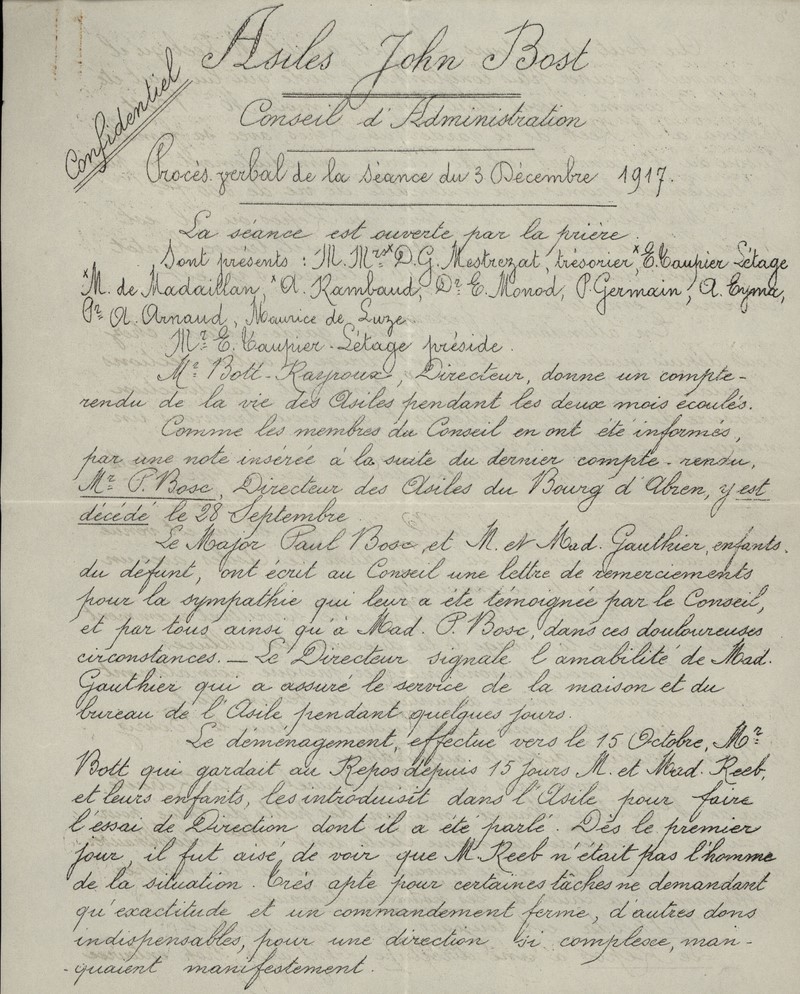 Asiles John Bost
Confidentiel
Conseil d'Administration
Procès-verbal de la Séance du 3 Décembre 1917.
La séance est ouverte par la prière.
Sont présents : M. Mrs × D.G. Mestrezat, trésorier, × E. Taupier Létage
× M. de Madaillan, × A. Rambaud, Dr E. Monod, P. Germain, A. Eyma,
Pr A. Arnaud, Maurice de Luze.
Mr E. Taupier-Létage préside.
Mr Bott-Rayroux, Directeur, donne un compte-
rendu de la vie des Asiles pendant les deux mois écoulés.
Comme les membres du Conseil en ont été informés,
par une note insérée à la suite du dernier compte-rendu,
Mr P. Bosc, Directeur des Asiles du Bourg d'Abren, y est
décédé le 28 Septembre
Le Major Paul Bosc, et M. et Mad. Gauthier, enfants
du défunt, ont écrit au Conseil une lettre de remerciements
pour la sympathie qui leur a été témoignée par le Conseil,
et par tous ainsi qu'à Mad. P. Bosc, dans ces douloureuses
circonstances. — Le Directeur signale l'amabilité de Mad.
Gauthier qui a assuré le service de la maison et du
bureau de l'Asile pendant quelques jours.
Le déménagement, effectué vers le 15 Octobre, Mr
Bott qui gardait au Repos depuis 15 jours M. et Mad. Reeb,
et leurs enfants, les introduisit dans l'Asile pour faire
l'essai de Direction dont il a été parlé. Dès le premier
jour, il fut aisé de voir que M. Reeb n'était pas l'homme
de la situation. Très apte pour certaines tâches ne demandant
qu'exactitude et un commandement ferme, d'autres dons
indispensables, pour une direction si complexe, man-
-quaient manifestement.